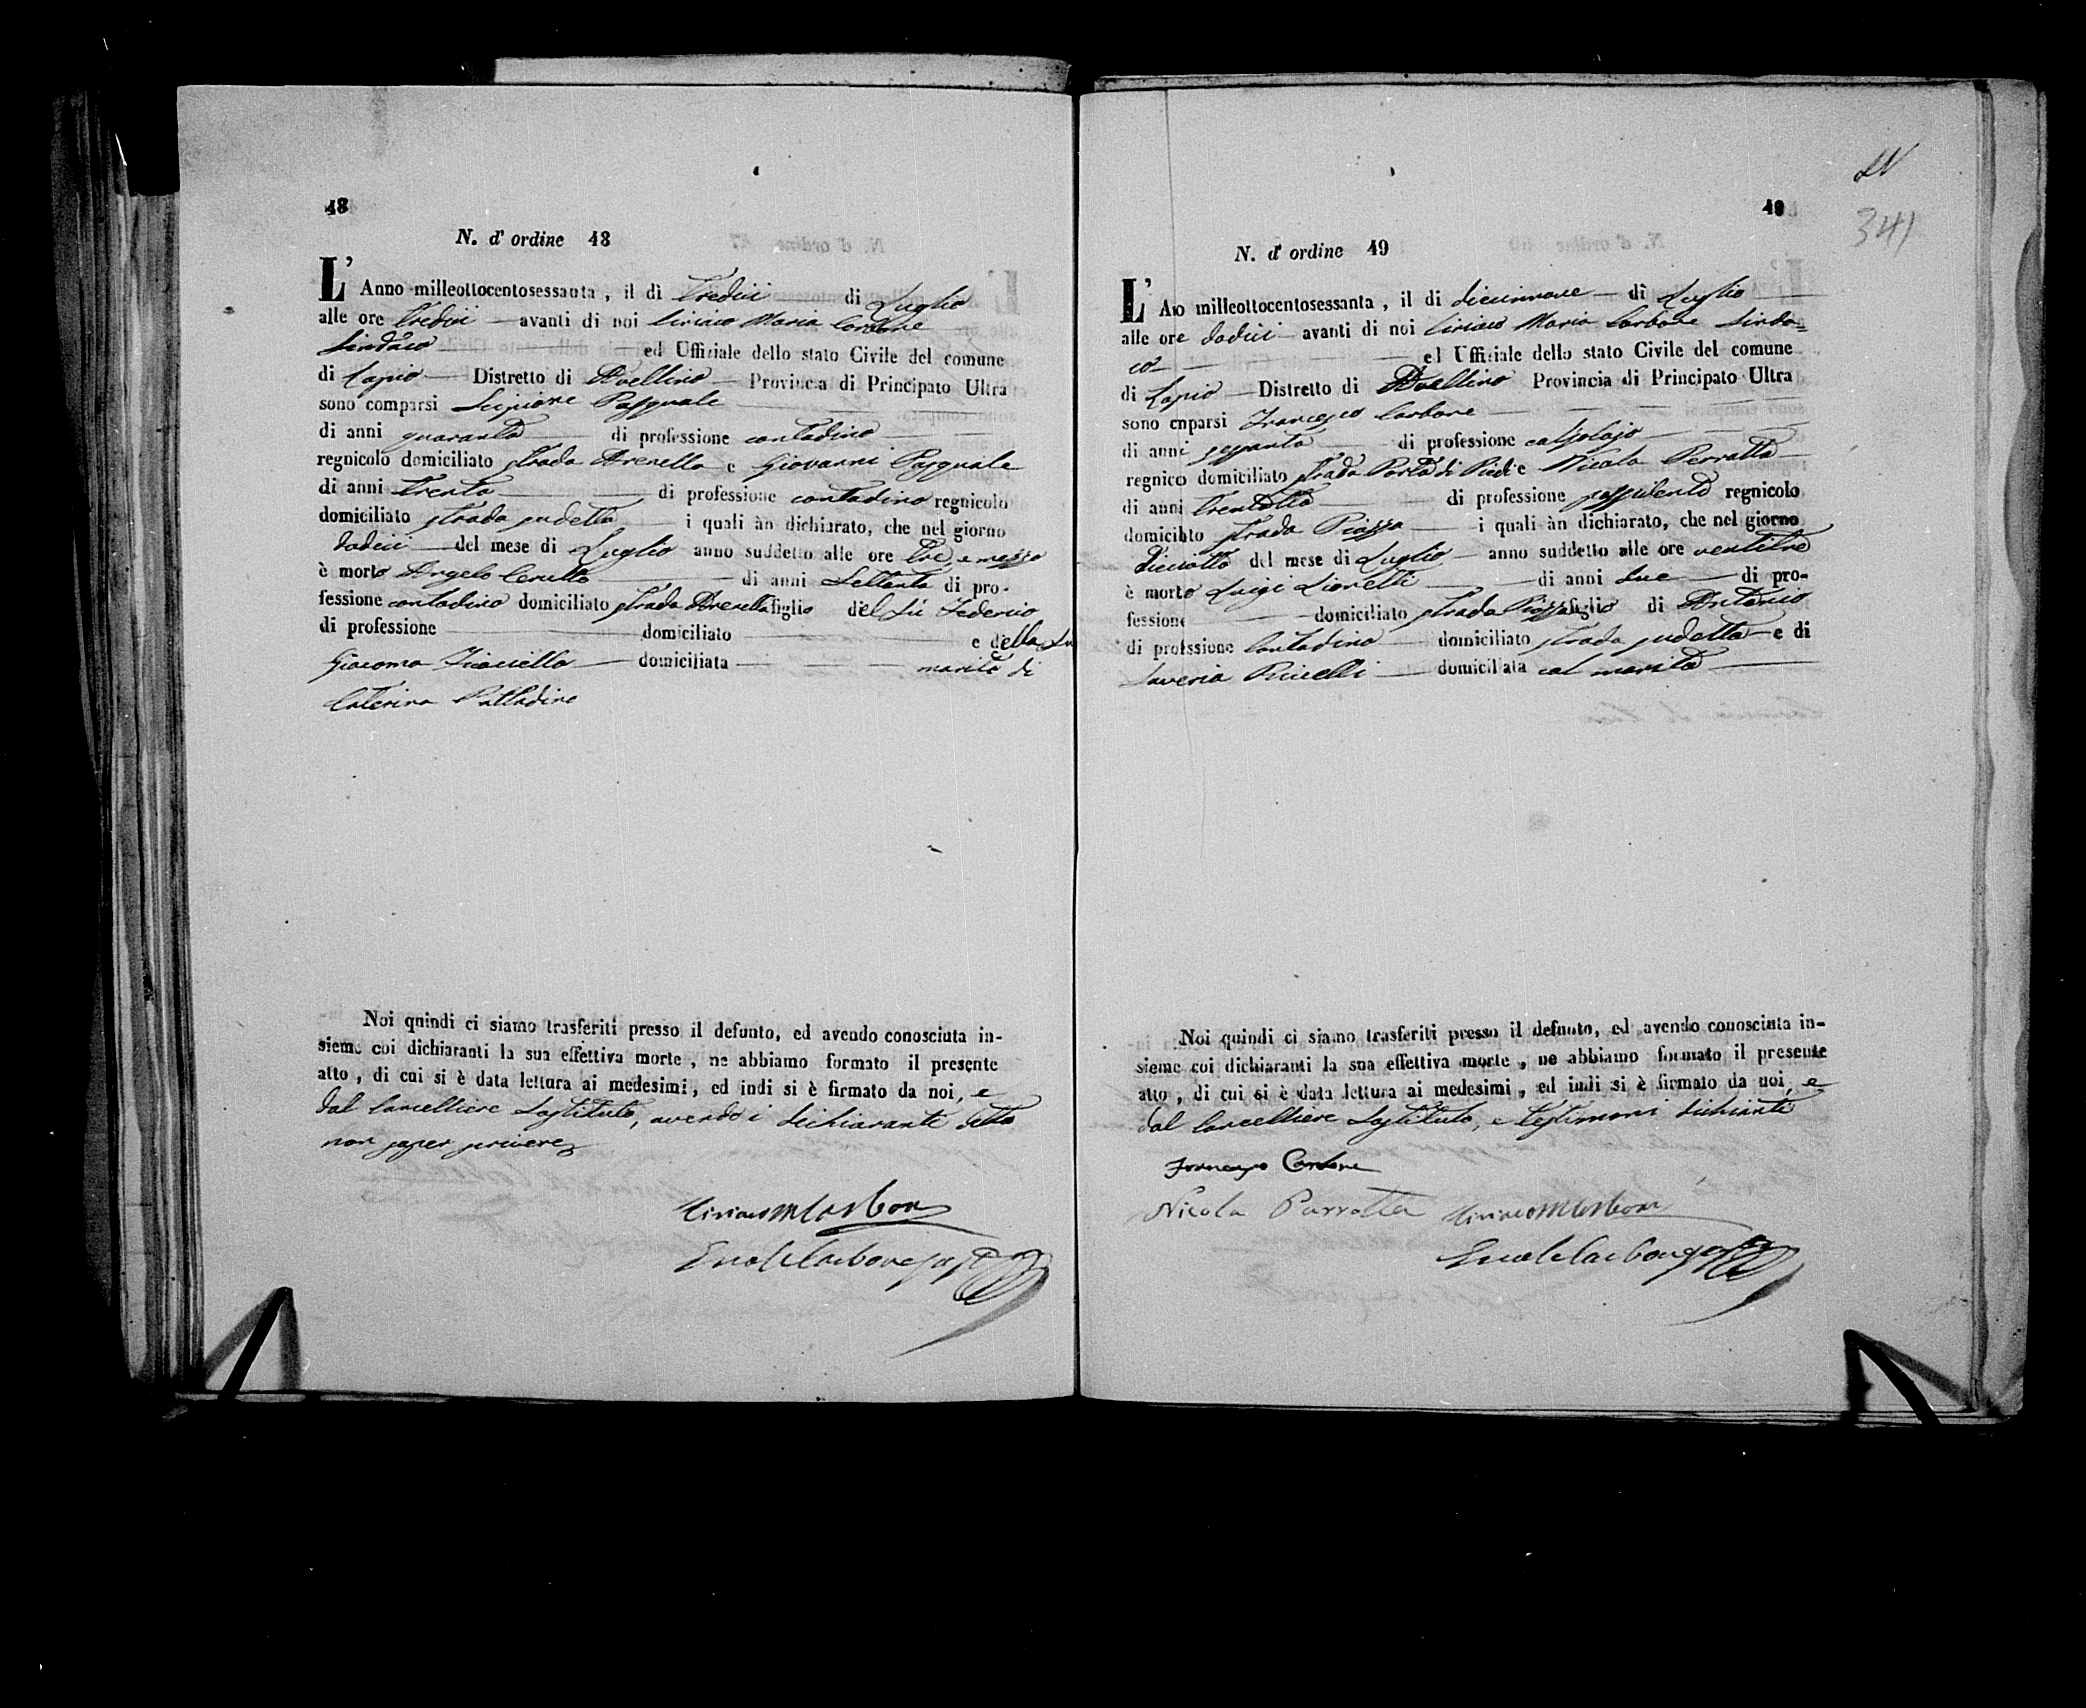 48
N. d' ordine 48
L' Anno milleottocentosessanta , il dì Tredici di Luglio
alle ore Tredici avanti di noi Ciriaco Maria Carbone
Sindaco ed Uffiziale dello stato Civile del comune
di Lapio Distretto di Avellino Provincia di Principato Ultra
sono comparsi Scipione Pasquale
di anni quaranta di professione contadino
regnicolo domiciliato strada Arenella e Giovanni Pasquale
di anni trenta di professione contadino regnicolo
domiciliato strada sudetta i quali àn dichiarato, che nel giorno
dodici del mese di Luglio anno suddetto alle ore tre, e mezzo
è morto Angelo Cerullo di anni Settanta di pro-
fessione contadino domiciliato strada Arenella figlio del fù Federico
di professione domiciliato e della fu
Giacoma domiciliata marito di
Caterina Palladino
Noi quindi ci siamo trasferiti presso il defunto, ed avendo conosciuta in-
sieme coi dichiaranti la sua effettiva morte , ne abbiamo formato il presente
atto , di cui si è data lettura ai medesimi, ed indi si è firmato da noi, e
dal Cancelliere Sostituto, avendo i dichiaranti detto
non saper scrivere
Ciriaco M Carbone
Carbone sost
LV
49
341
N. d' ordine 49
L' Ano milleottocentosessanta , il di diciannove di Luglio
alle ore dodici avanti di noi Ciriaco Maria Carbone Sinda=
co ed Uffiziale dello stato Civile del comune
di Lapio Distretto di Avellino Provincia di Principato Ultra
sono cnparsi Francesco Carbone
di anni sessanta di professione calzolajo
regnico domiciliato strada Porta di Piedi e Nicola Perrotta
di anni trentotto di professione possidente regnicolo
domicilito strada Piazza i quali àn dichiarato, che nel giorno
diciotto del mese di Luglio anno suddetto alle ore ventitre
è morto Luigi Lionelli di anni due di pro-
fessione domiciliato strada Piazza figlio di Antonio
di profssione Contadino domiciliato strada sudetta e di
Saveria domiciliata col marito
Noi quindi ci siamo trasferiti presso il defunto, ed avendo conosciuta in-
sieme coi dichiaranti la sua effettiva morte , ne abbiamo formato il presente
atto , di cui si è data lettura ai medesimi , ed indi si è firmato da noi, e
dal Cancelliere Sostituto, e testimoni dichianti
Francesco Carbone
Nicola Parrotta Ciriaco M Carbone
Carbone sost